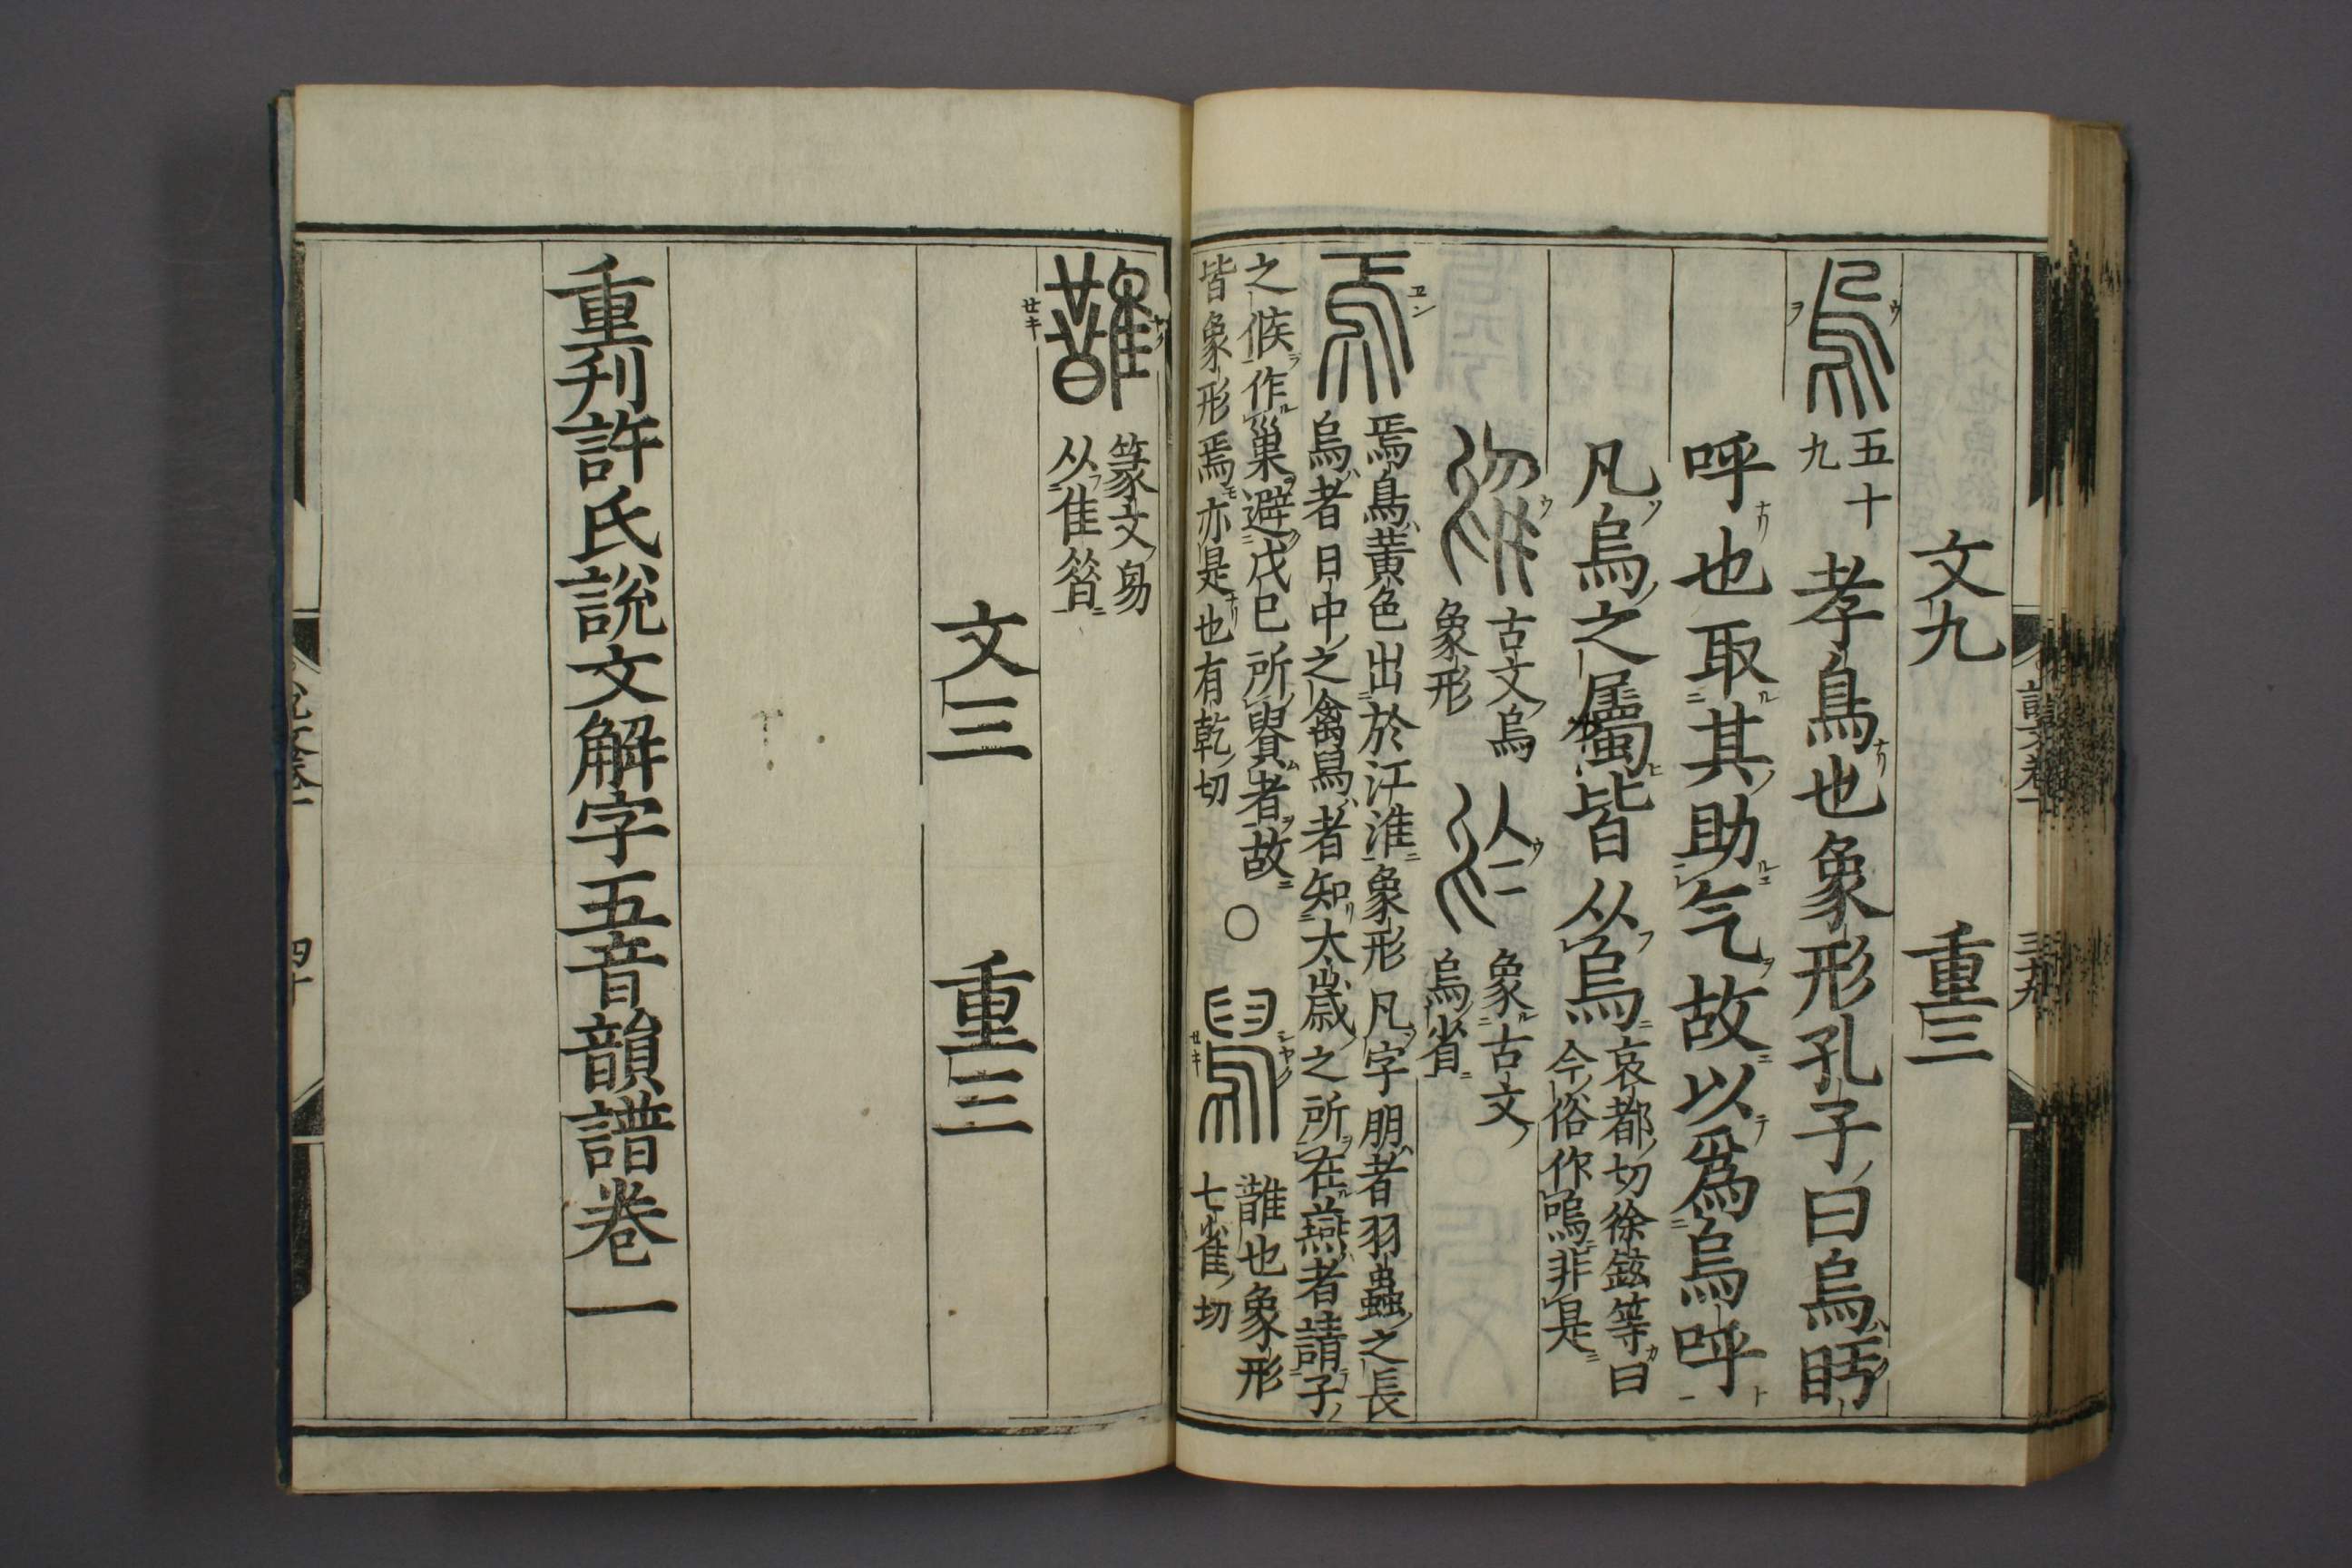 文九　重三
烏　五十九　孝鳥也象形孔子曰烏盱
呼也取其助气故以爲烏呼
凡烏之屬皆从烏　哀都切徐鉉等曰
今俗作嗚非是
古文烏
象形
象古文
烏省
焉鳥黃色出於江淮象形凡字朋者羽蟲之長
烏者日中之禽舄者知太歲之所在燕者請子
之候作巢避戊巳所貴者故
皆象形焉亦是也有乾切
〇　舄
誰也象形
七雀切
篆文舄
从隹㫺
文三　重三
重刊許氏說文解字五音韻譜卷一
說文卷一　三十九
說文卷一　四十